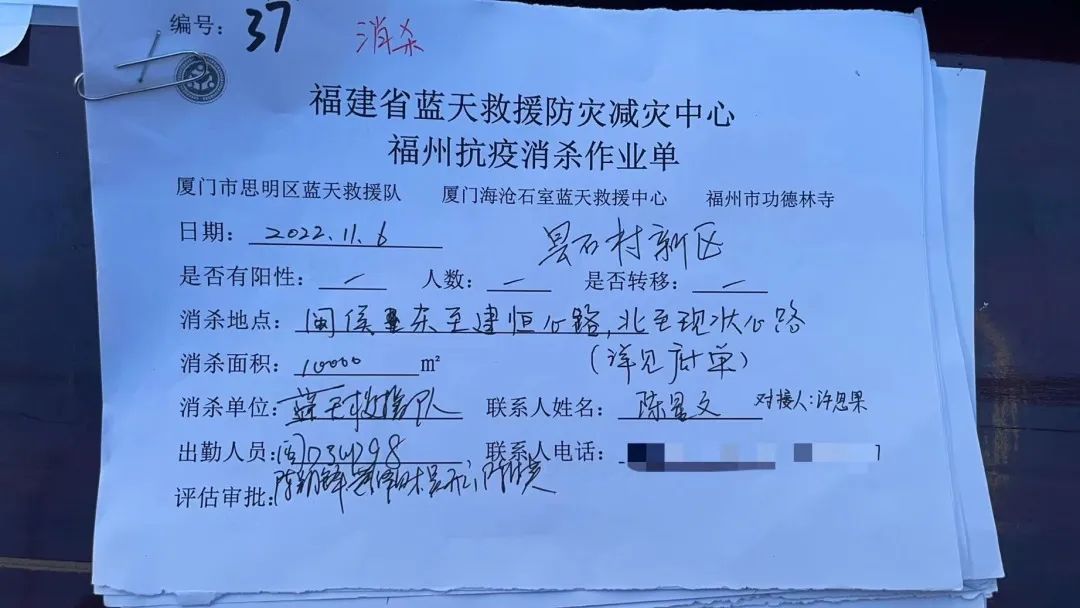 编号: 37 消杀
福建省蓝天救援防灾减灾中心
福州抗疫消杀作业单
厦门市思明区蓝天救援队 厦门海沧石室蓝天救援中心 福州市功德林寺
日期: 2022.11.6 昙石村新区
是否有阳性: — 人数: — 是否转移: —
消杀地点: 闽侯 东至建恒公路,北至现状公路
消杀面积: 10000 ㎡ (详见底单)
消杀单位: 蓝天救援队 联系人姓名: 陈 文 对接人:许思果
出勤人员: 闽D 298 联系人电话:
评估审批: